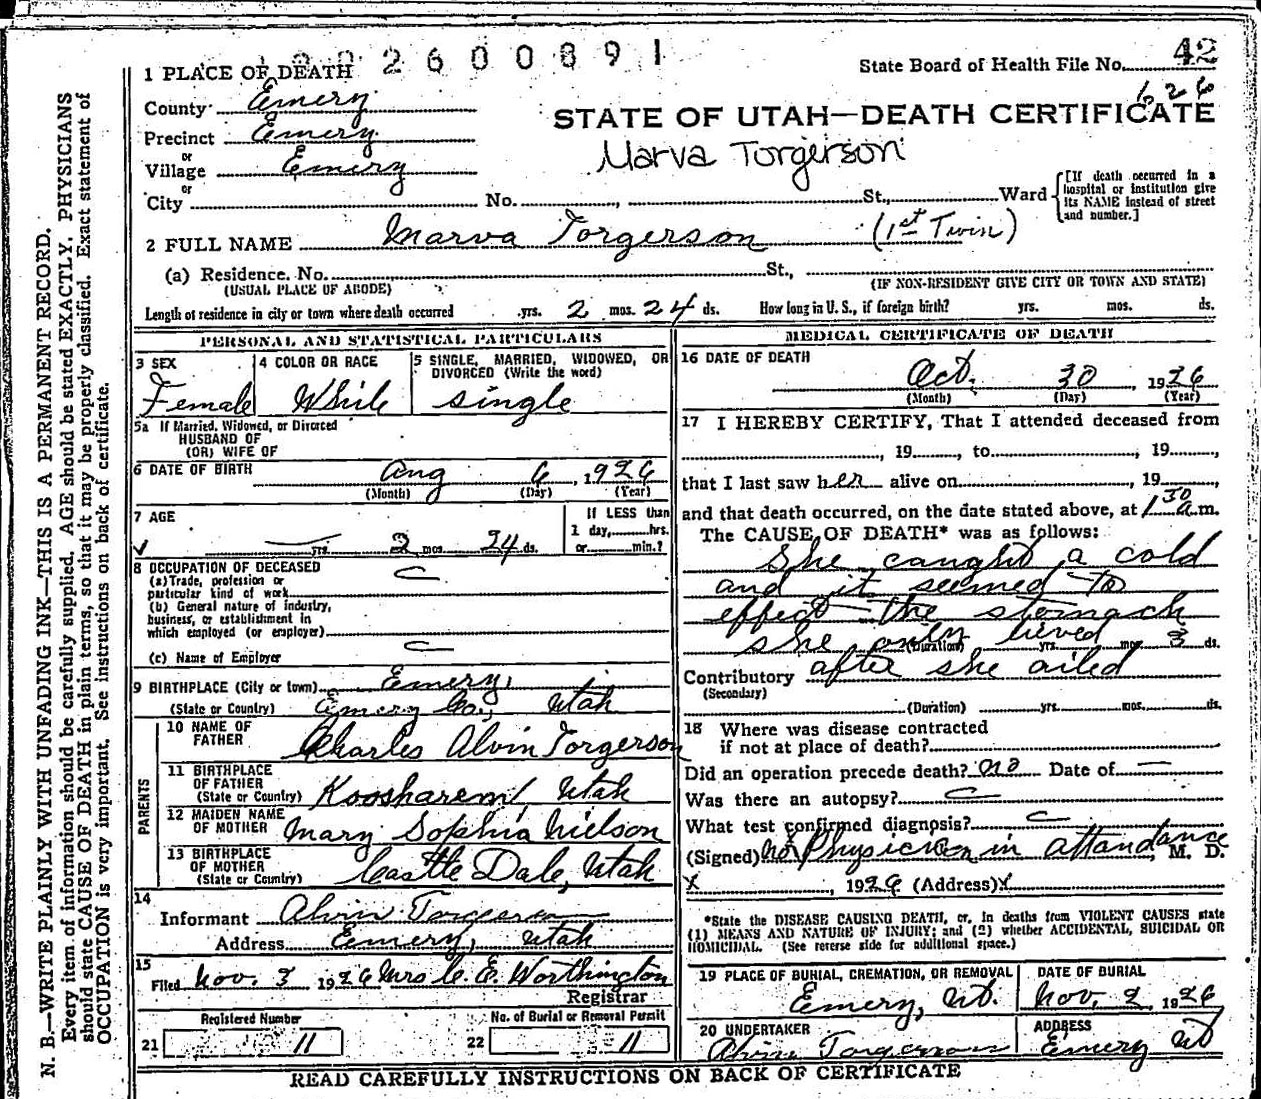 2600891
1 PLACE OF DEATH
State Board of Health File No. 42
626
County Emery
STATE OF UTAH—DEATH CERTIFICATE
Precinct Emery
Marva Torgerson
or
Village Emery
or
City No. , St., Ward
[If death occurred in a hospital or institution give its NAME instead of street and number.]
2 FULL NAME Marva Torgerson (1st Twin)
(a) Residence. No. St.,
(USUAL PLACE OF ABODE) (IF NON-RESIDENT GIVE CITY OR TOWN AND STATE)
Length of residence in city or town where death occurred yrs. 2 mos. 24 ds. How long in U. S., if foreign birth? yrs. mos. ds.
PERSONAL AND STATISTICAL PARTICULARS
3 SEX
Female
4 COLOR OR RACE
While
5 SINGLE, MARRIED, WIDOWED, OR
DIVORCED (Write the word)
single
5a If Married, Widowed, or Divorced
HUSBAND OF
(OR) WIFE OF
6 DATE OF BIRTH Aug 6, 1926
(Month) (Day) (Year)
7 AGE
yrs. 2 mos. 24 ds.
If LESS than
1 day, hrs.
or min.?
8 OCCUPATION OF DECEASED
(a) Trade, profession or
particular kind of work
(b) General nature of industry,
business, or establishment in
which employed (or employer)
(c) Name of Employer
9 BIRTHPLACE (City or town) Emery,
(State or Country) Emery Co, Utah
PARENTS
10 NAME OF
FATHER Charles Alvin Torgerson
11 BIRTHPLACE
OF FATHER
(State or Country) Koosharem, Utah
12 MAIDEN NAME
OF MOTHER Mary Sophia Nielson
13 BIRTHPLACE
OF MOTHER
(State or Country) Castle Dale, Utah
14
Informant Alvin Torgerson
Address Emery, Utah
15
Filed Nov. 3 1926 Mrs C. E. Worthington
Registrar
Registered Number
21 11
No. of Burial or Removal Permit
22 11
MEDICAL CERTIFICATE OF DEATH
16 DATE OF DEATH
Oct. 30, 1926
(Month) (Day) (Year)
17 I HEREBY CERTIFY, That I attended deceased from
, 19 , to , 19 ,
that I last saw her alive on , 19
and that death occurred, on the date stated above, at 1 30 a.m.
The CAUSE OF DEATH* was as follows:
She caught a cold
and it seemed to
effect the stomach
she only lieved
(Duration) yrs. mos. 3 ds.
Contributory after she ailed
(Secondary)
(Duration) yrs. mos. ds.
18 Where was disease contracted
if not at place of death?
Did an operation precede death? no Date of —
Was there an autopsy?
What test confirmed diagnosis?
(Signed) No Physician in attandance, M. D.
X , 1926 (Address) X
*State the DISEASE CAUSING DEATH, or, in deaths from VIOLENT CAUSES state
(1) MEANS AND NATURE OF INJURY; and (2) whether ACCIDENTAL, SUICIDAL OR
HOMICIDAL. (See reverse side for additional space.)
19 PLACE OF BURIAL, CREMATION, OR REMOVAL
Emery, Ut.
DATE OF BURIAL
Nov. 2, 1926
20 UNDERTAKER
Alvin Torgerson
ADDRESS
Emery Ut
READ CAREFULLY INSTRUCTIONS ON BACK OF CERTIFICATE
N. B.—WRITE PLAINLY WITH UNFADING INK—THIS IS A PERMANENT RECORD.
Every item of information should be carefully supplied. AGE should be stated EXACTLY. PHYSICIANS
should state CAUSE OF DEATH in plain terms, so that it may be properly classified. Exact statement of
OCCUPATION is very important. See instructions on back of certificate.